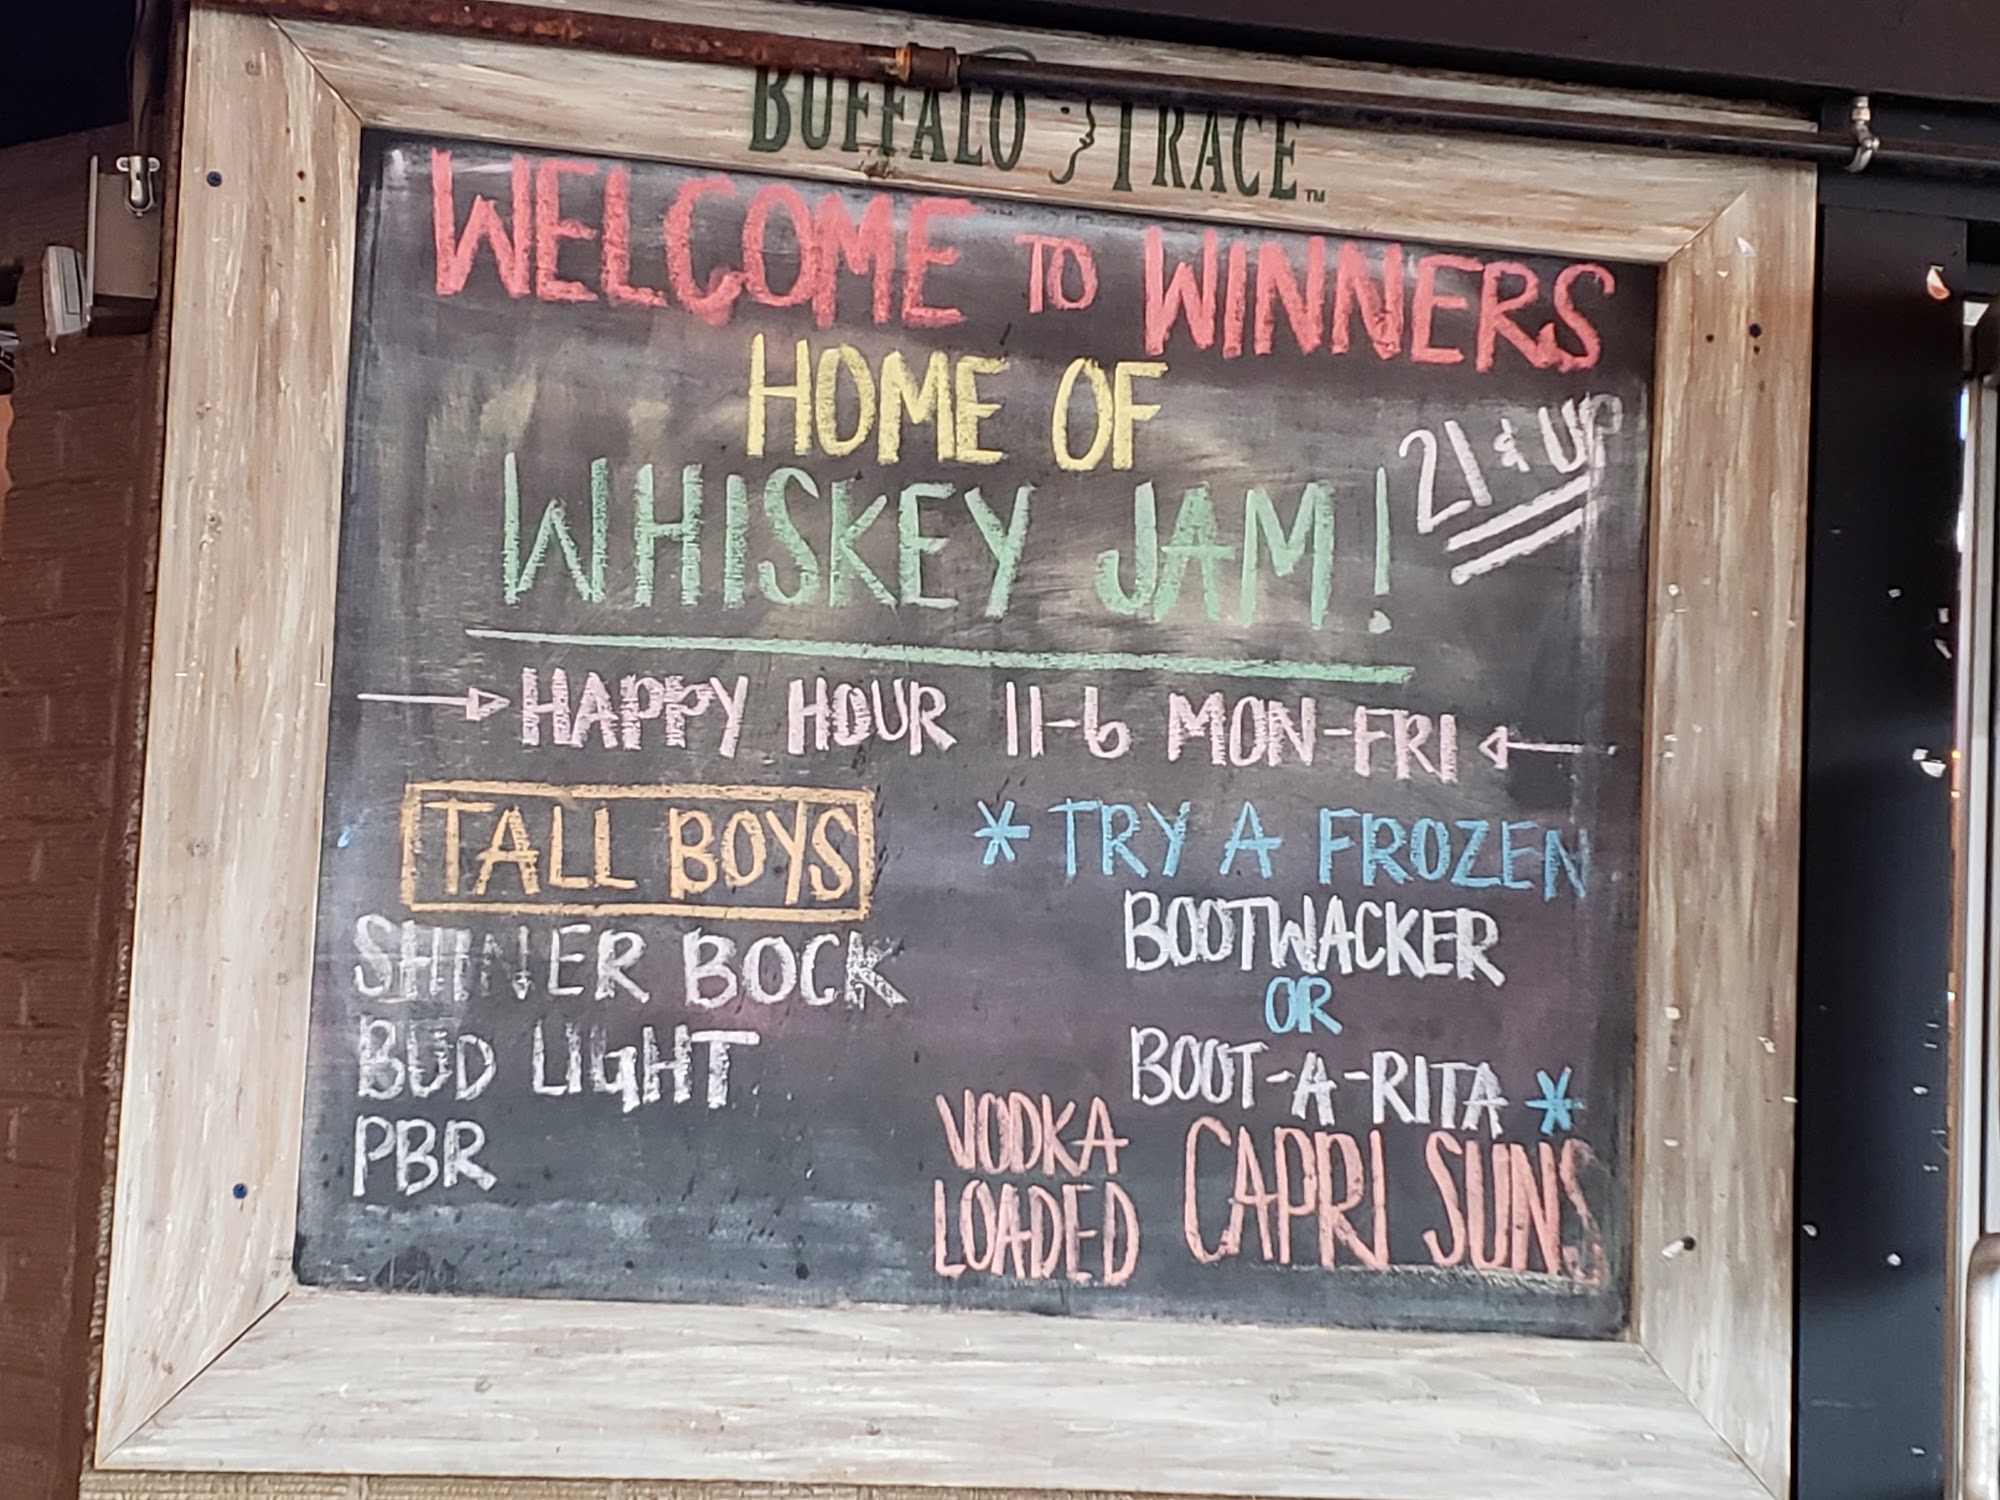 BUFFALO TRACE™
WELCOME TO WINNERS
HOME OF
21 & UP
WHISKEY JAM!
HAPPY HOUR 11-6 MON-FRI
TALL BOYS
SHINER BOCK
BUD LIGHT
PBR
* TRY A FROZEN
BOOTWACKER
OR
BOOT-A-RITA *
VODKA
LOADED CAPRI SUNS